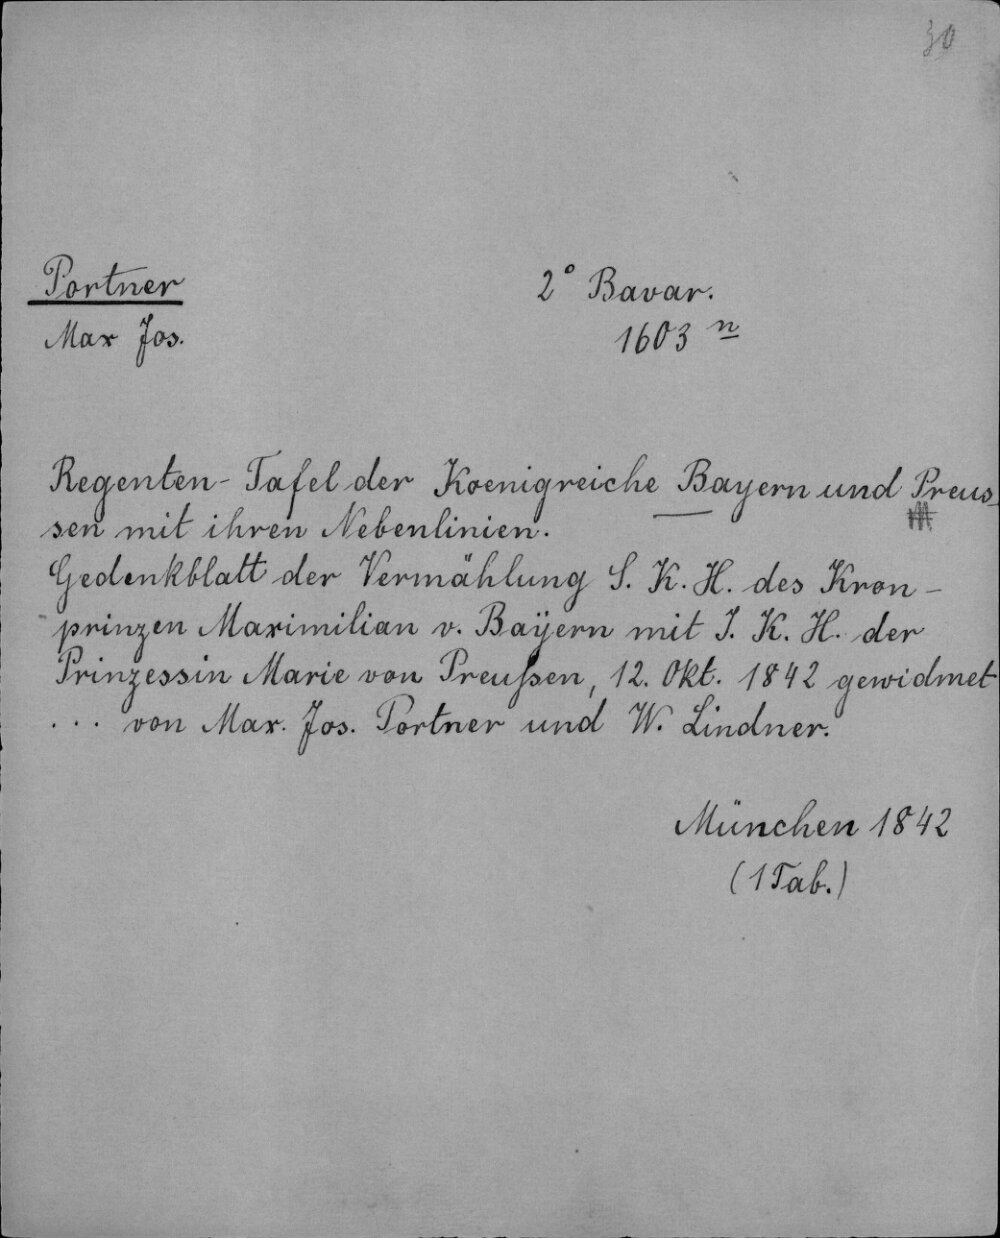 30
Portner
Max Jos.
2° Bavar.
1603 n
Regenten-Tafel der Koenigreiche Bayern und Preus-
sen mit ihren Nebenlinien.
Gedenkblatt der Vermählung S. K. H. des Kron-
prinzen Maximilian v. Baÿern mit I. K. H. der
Prinzessin Marie von Preußen, 12. Okt. 1842 gewidmet
... von Max. Jos. Portner und W. Lindner.
München 1842
(1 Tab.)